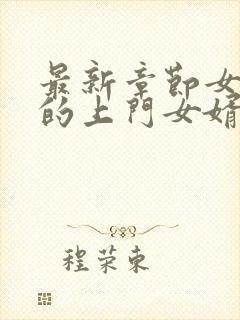 最新章節女
的上門女婿
程荣东